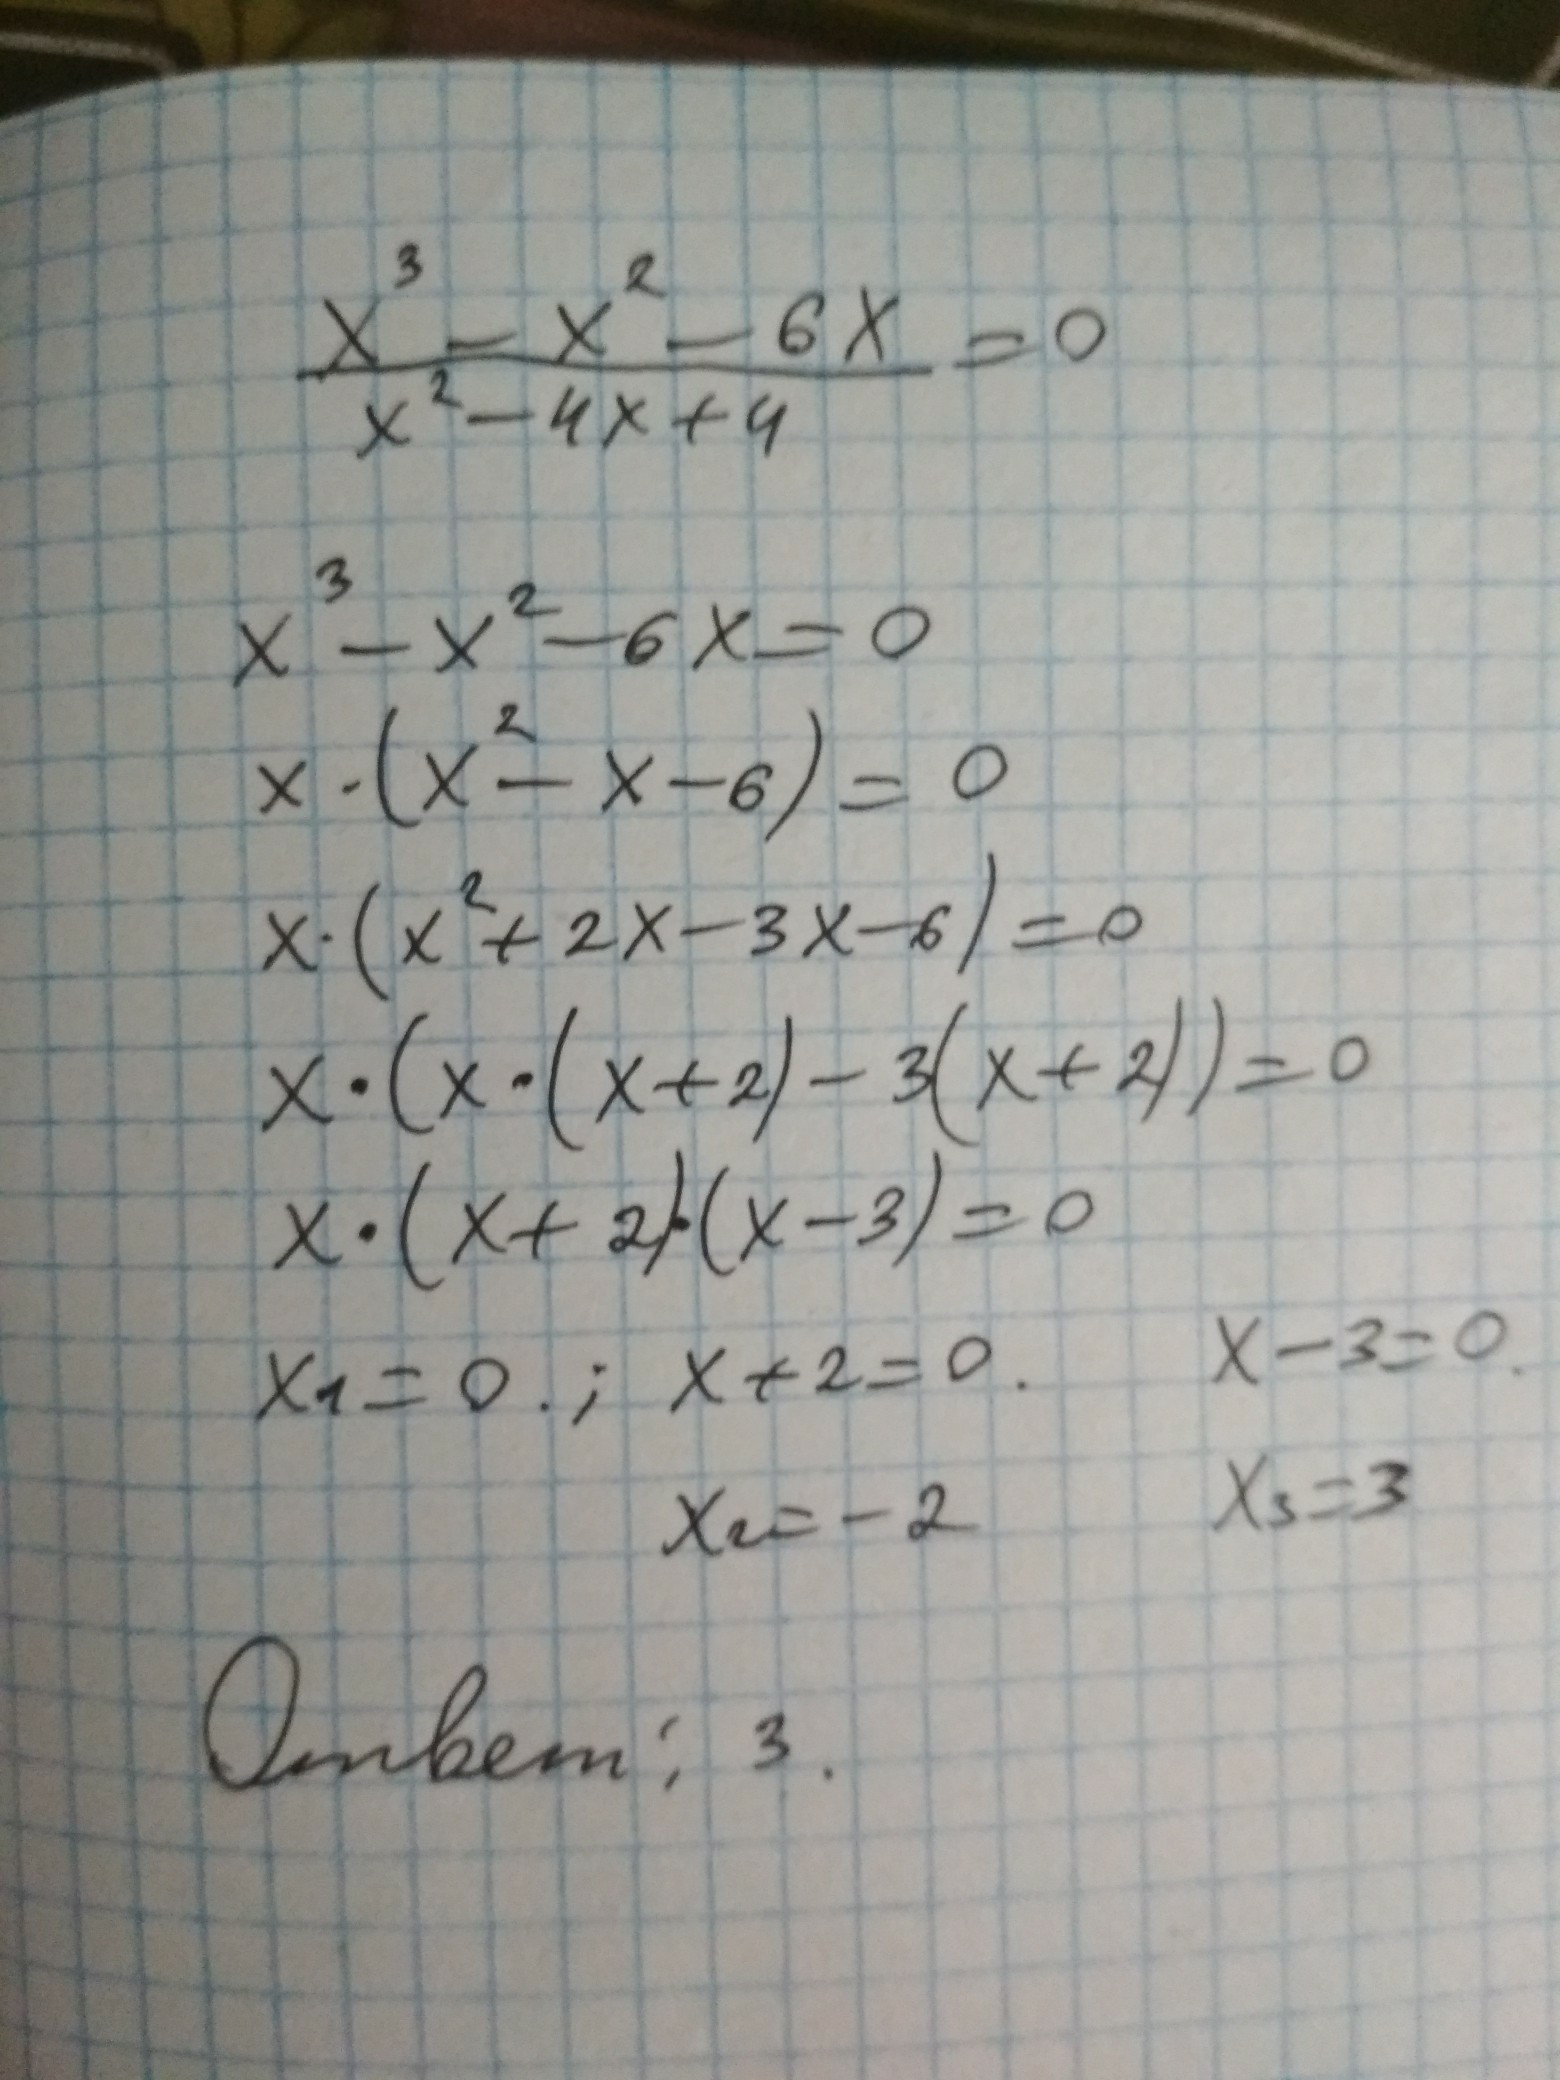 x³ - x² - 6x = 0
x² - 4x + 4
x³ - x² - 6x = 0
x · (x² - x - 6) = 0
x · (x² + 2x - 3x - 6) = 0
x · (x · (x + 2) - 3(x + 2)) = 0
x · (x + 2) · (x - 3) = 0
x₁ = 0 . ; x + 2 = 0 . x - 3 = 0 .
x₂ = - 2 x₃ = 3
Ответ: 3 .